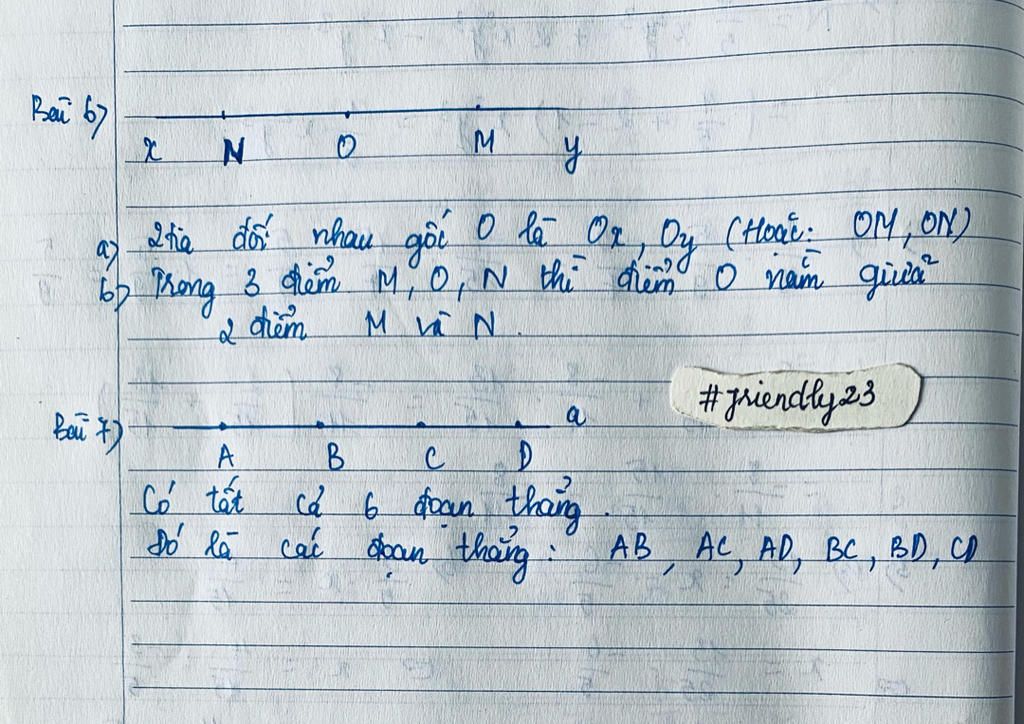 Bài 6)
x N O M y
a) 2 tia đối nhau gốc O là Ox, Oy (Hoặc: OM, ON)
b) Trong 3 điểm M, O, N thì điểm O nằm giữa
2 điểm M và N.
#friendly23
Bài 7) a
A B C D
Có tất cả 6 đoạn thẳng.
Đó là các đoạn thẳng: AB, AC, AD, BC, BD, CD